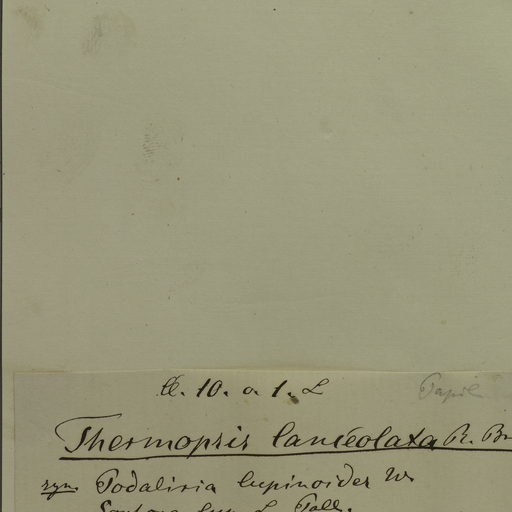 Cl. 10. o. 1. L
Papil
Thermopsis lanceolata R. Br
syn. Podaliria lupinoides W.
lup. L. Pall.